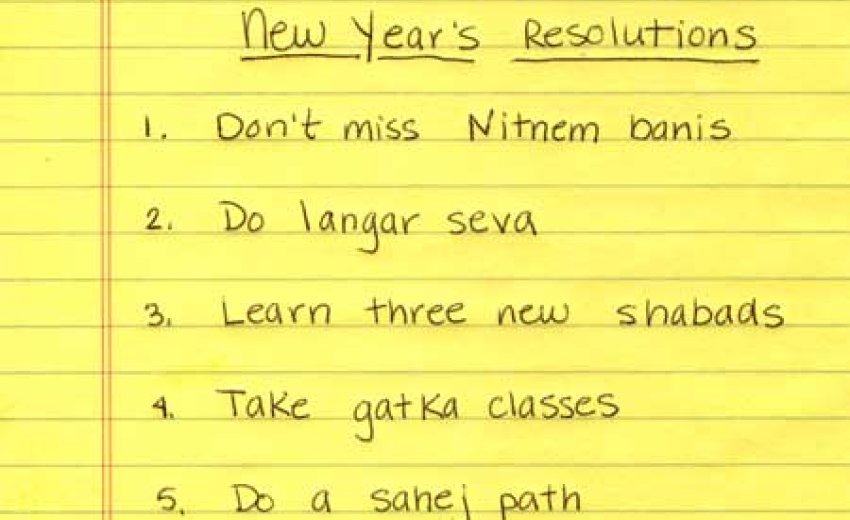 New Year's Resolutions
1. Don't miss Nitnem banis
2. Do langar seva
3. Learn three new shabads
4. Take gatka classes
5. Do a sahej path